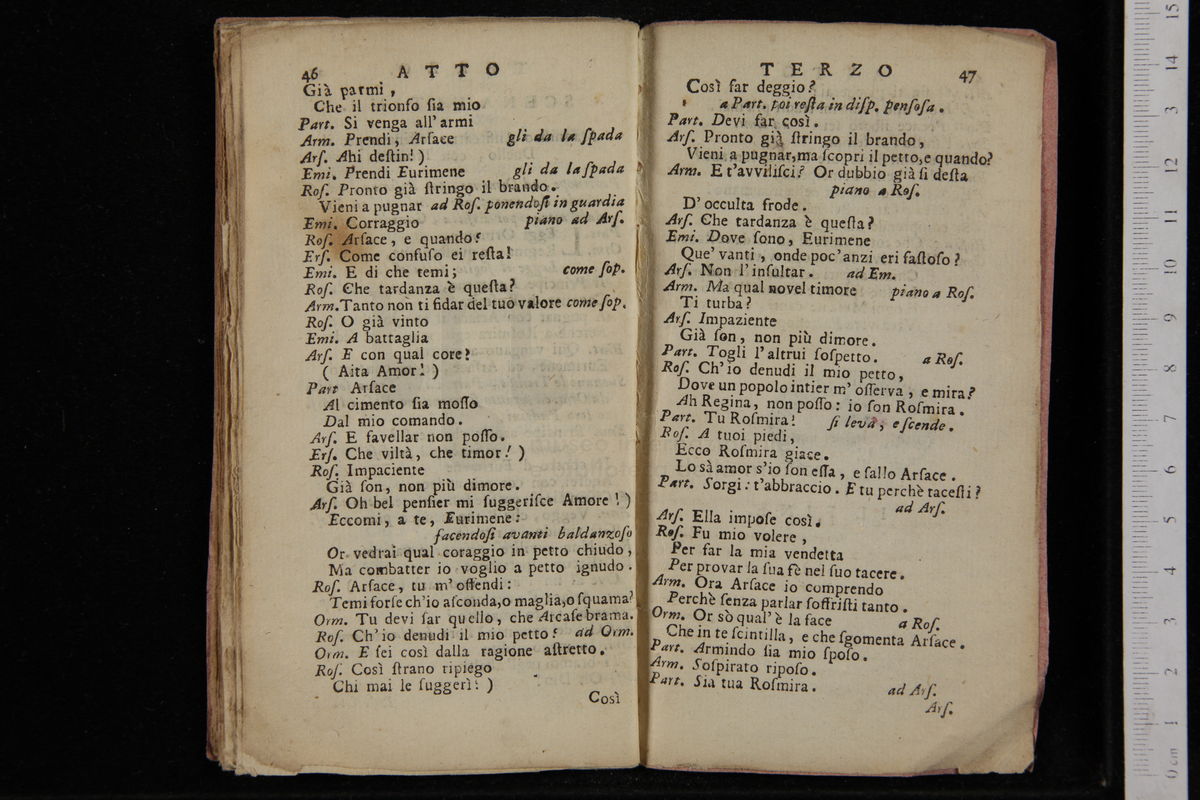 46 ATTO
Già parmi,
Che il trionfo ſia mio
Part. Si venga all'armi
Arm. Prendi, Arſace gli da la ſpada
Arſ. Ahi deſtin!)
Emi. Prendi Eurimene gli da la ſpada
Roſ. Pronto già ſtringo il brando.
Vieni a pugnar ad Roſ. ponendoſi in guardia
Emi. Corraggio piano ad Arſ.
Roſ. Arſace, e quando?
Erſ. Come confuſo ei reſta!
Emi. E di che temi; come ſop.
Roſ. Che tardanza è queſta?
Arm. Tanto non ti fidar del tuo valore come ſop.
Roſ. O già vinto
Emi. A battaglia
Arſ. E con qual core?
( Aita Amor! )
Part Arſace
Al cimento ſia moſſo
Dal mio comando.
Arſ. E favellar non poſſo.
Erſ. Che viltà, che timor! )
Roſ. Impaciente
Già ſon, non più dimore.
Arſ. Oh bel penſier mi ſuggeriſce Amore! )
Eccomi, a te, Eurimene:
facendoſi avanti baldanzoſo
Or vedrai qual coraggio in petto chiudo,
Ma combatter io voglio a petto ignudo.
Roſ. Arſace, tu m'offendi:
Temi forſe ch'io aſconda, o maglia, o ſquama?
Orm. Tu devi far quello, che Arcaſe brama.
Roſ. Ch'io denudi il mio petto? ad Orm.
Orm. E ſei così dalla ragione aſtretto.
Roſ. Così ſtrano ripiego
Chi mai le ſuggerì! )
Così
TERZO 47
Così far deggio?
a Part. poi reſta in diſp. penſoſa.
Part. Devi far così.
Arſ. Pronto già ſtringo il brando,
Vieni a pugnar, ma ſcopri il petto, e quando?
Arm. E t'avviliſci? Or dubbio già ſi deſta
piano a Roſ.
D'occulta frode.
Arſ. Che tardanza è queſta?
Emi. Dove ſono, Eurimene
Que' vanti, onde poc'anzi eri faſtoſo?
Arſ. Non l'inſultar. ad Em.
Arm. Ma qual novel timore piano a Roſ.
Ti turba?
Arſ. Impaziente
Già ſon, non più dimore.
Part. Togli l'altrui ſoſpetto. a Roſ.
Roſ. Ch'io denudi il mio petto,
Dove un popolo intier m'oſſerva, e mira?
Ah Regina, non poſſo: io ſon Roſmira.
Part. Tu Roſmira! ſi leva, e ſcende.
Roſ. A tuoi piedi,
Ecco Roſmira giace.
Lo sà amor s'io ſon eſſa, e ſallo Arſace.
Part. Sorgi: t'abbraccio. E tu perchè taceſti?
ad Arſ.
Arſ. Ella impoſe così.
Roſ. Fu mio volere,
Per far la mia vendetta
Per provar la ſua fè nel ſuo tacere.
Arm. Ora Arſace io comprendo
Perchè ſenza parlar ſoffriſti tanto.
Orm. Or sò qual'è la face a Roſ.
Che in te ſcintilla, e che ſgomenta Arſace.
Part. Armindo ſia mio ſpoſo.
Arm. Soſpirato ripoſo.
Part. Sia tua Roſmira. ad Arſ.
Arſ.
0 cm 1 2 3 4 5 6 7 8 9 10 11 12 13 14 15